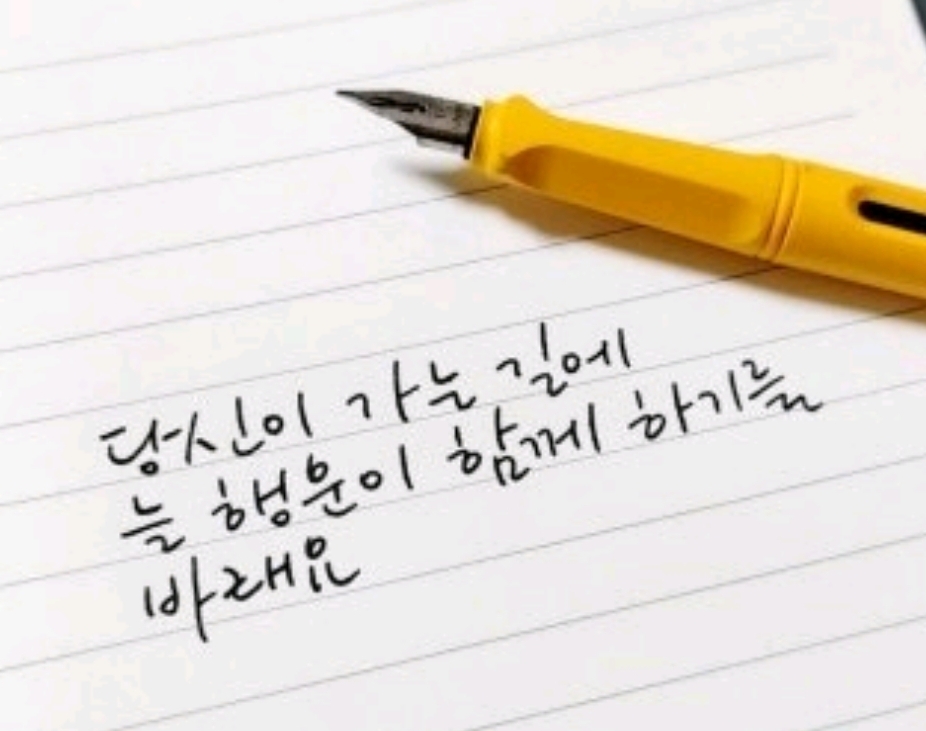 당신이 가는 길에
늘 행운이 함께 하기를
바래요